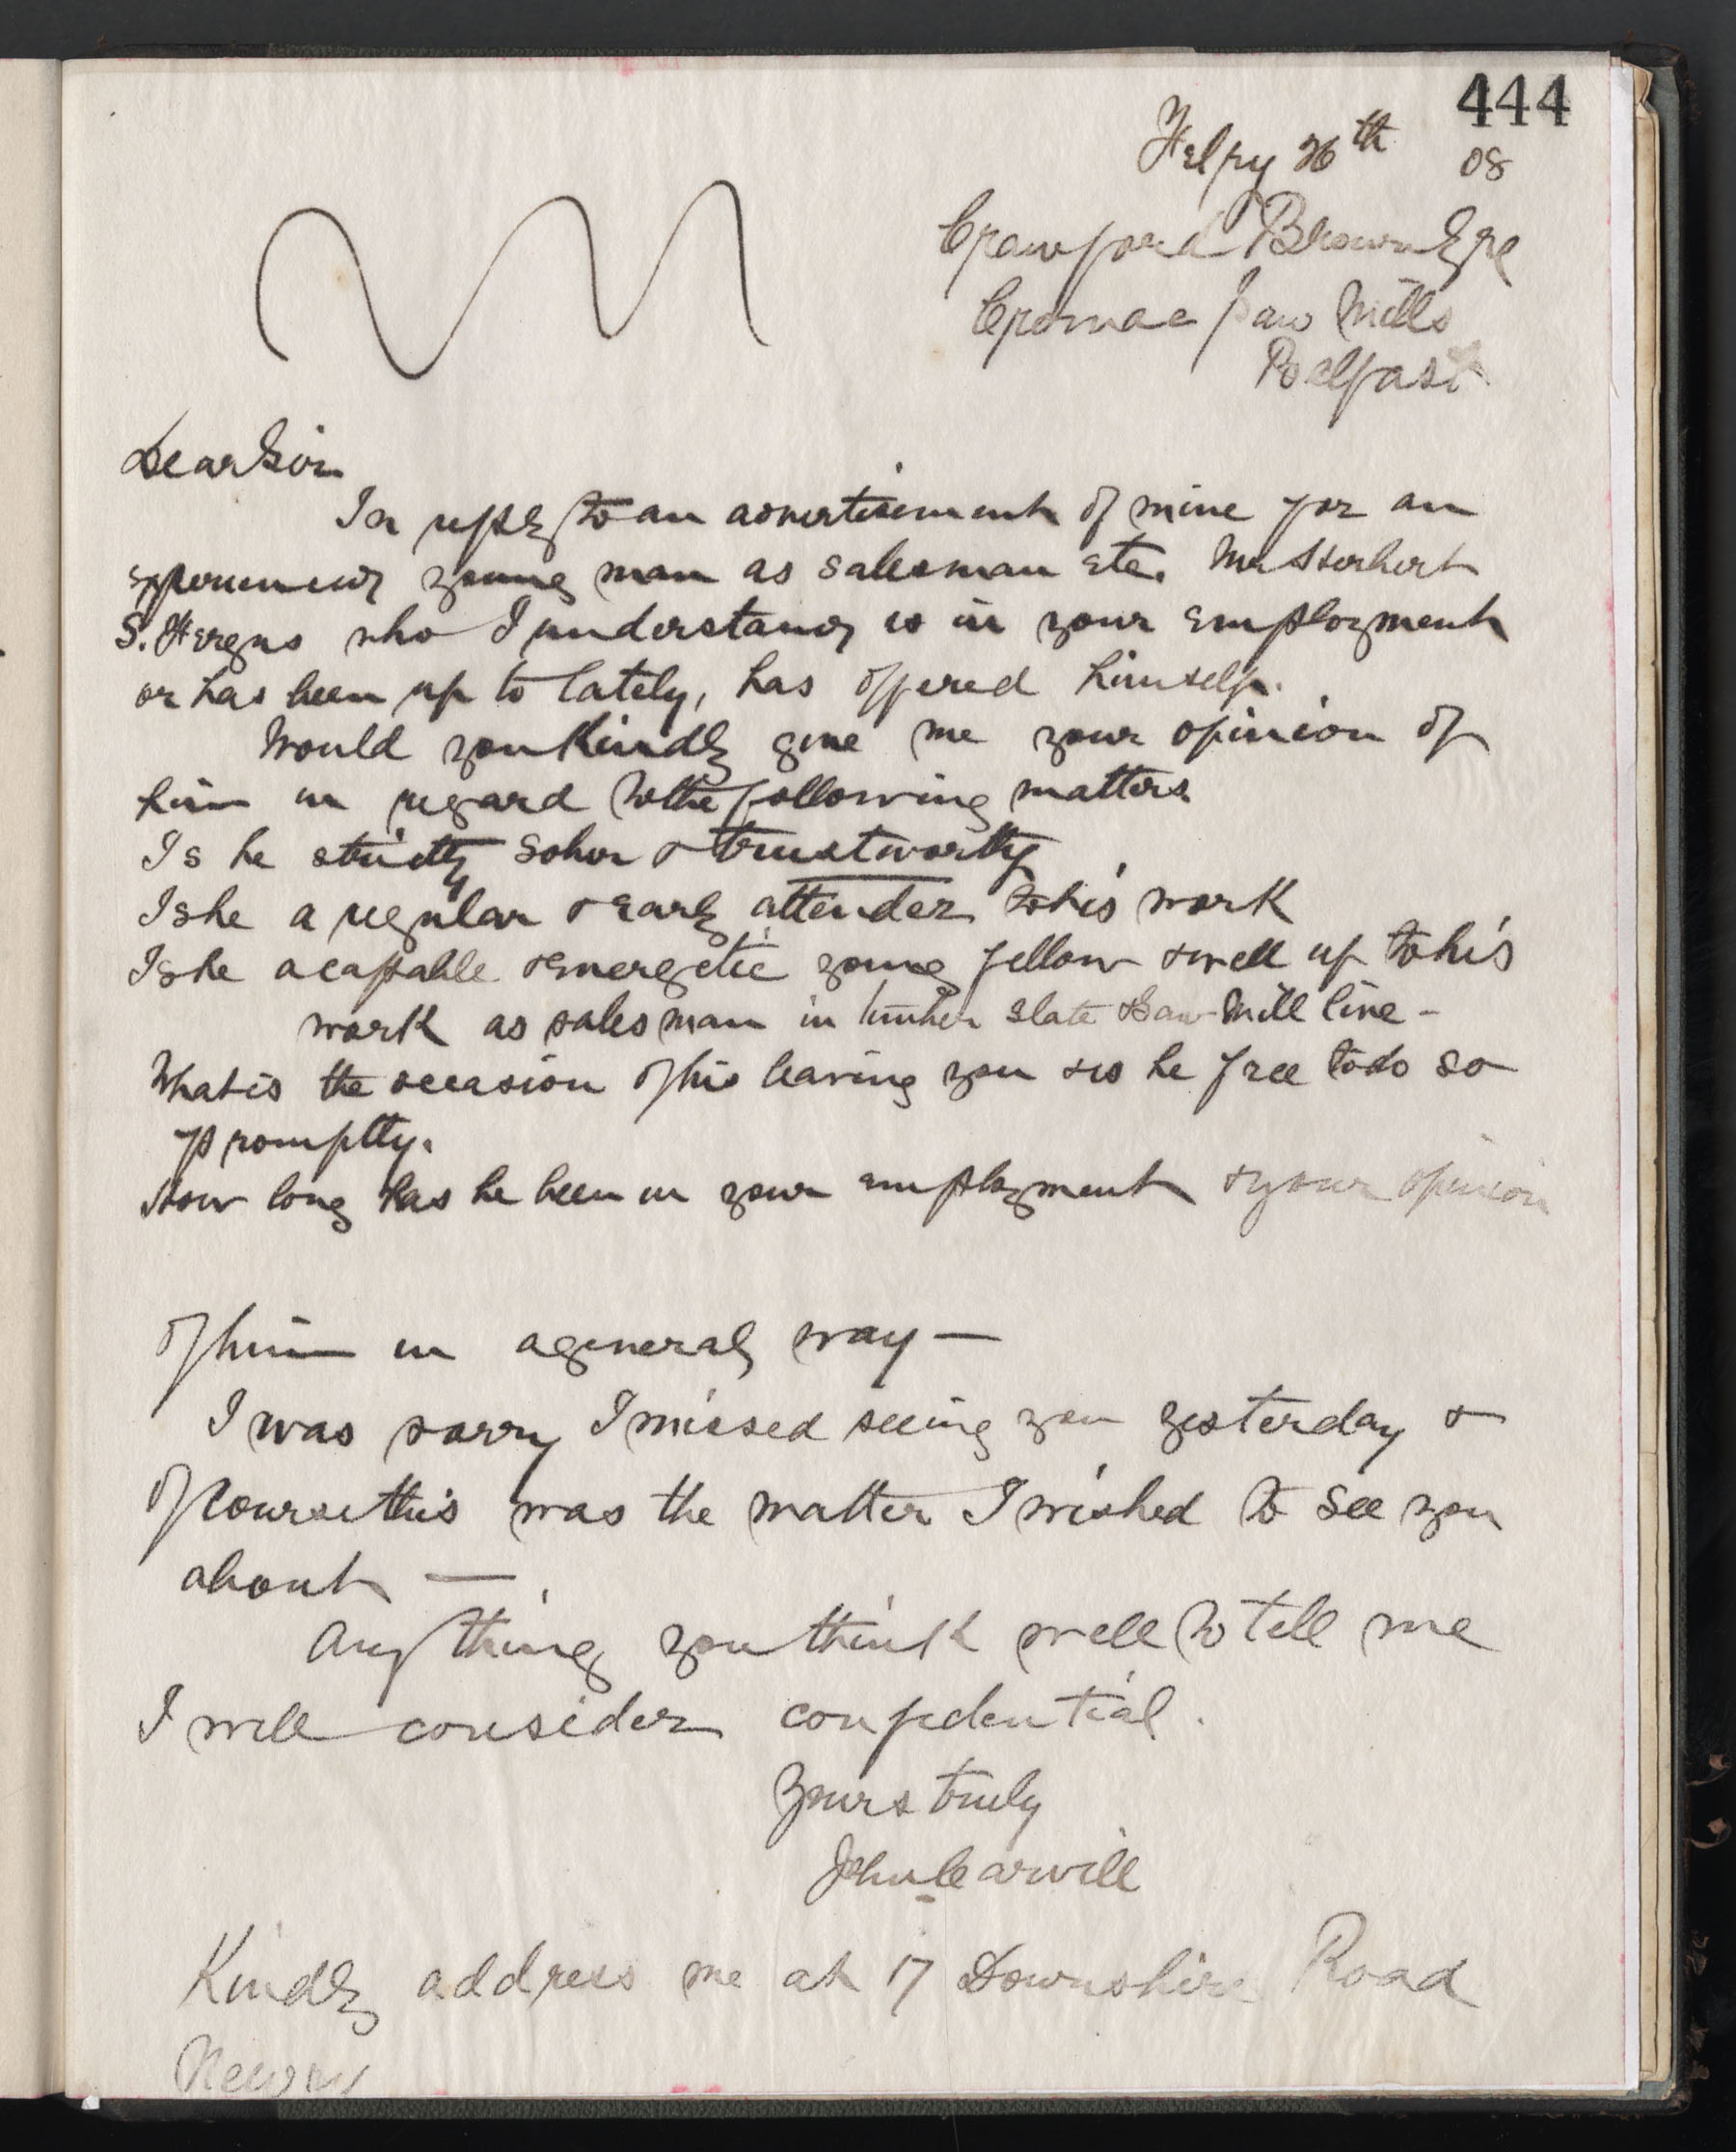 444
Febry 26th 08
Crawford Brown Esqe
Cromac Saw Mills
Belfast
Dear Sir
In reply to an advertisement of mine for an
experienced young man as salesman etc. Mr Herbert
S. who I understand is in your employment
or has been up to lately, has offered himself.
Would you Kindly give me your opinion of
him in regard to the following matters
Is he strictly sober & trustworthy
Is he a regular & early attender to his work
Is he a capable & energetic young fellow & well up to his
work as salesman in timber slate & Saw Mill line -
What is the occasion of his leaving you & is he free to do so
promptly.
How long has he been in your employment & your opinion
of him in a general way —
I was sorry I missed seeing you yesterday &
of course this was the matter I wished to see you
about —
Any thing you think well to tell me
I will consider confidential.
Yours truly
John Carvill
Kindly address me at 17 Downshire Road
Newry